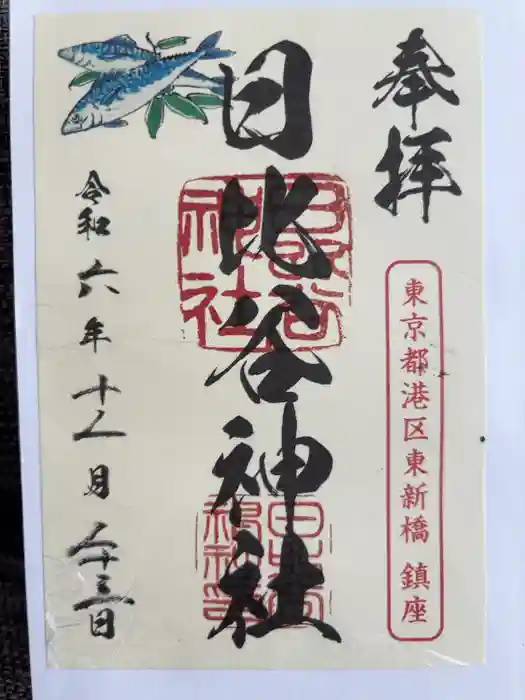 奉拝
東京都港区東新橋 鎮座
日比谷神社
日比谷
神社
令和六年十二月二十三日